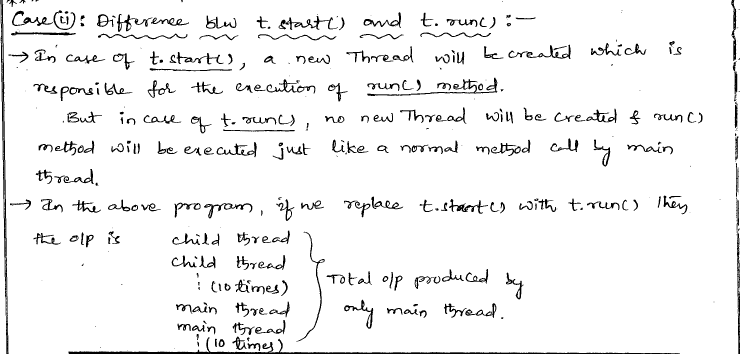 Case(ii): Difference b/w t. start() and t. run() :-
→ In case of t. start(), a new Thread will be created which is
responsible for the execution of run() method.
But in case of t. run(), no new Thread will be created & run()
method will be executed just like a normal method call by main
thread.
→ In the above program, if we replace t. start() with t. run() then
the o/p is child thread
child thread
⋮ (10 times)
main thread
main thread
⋮ (10 times)
Total o/p produced by
only main thread.